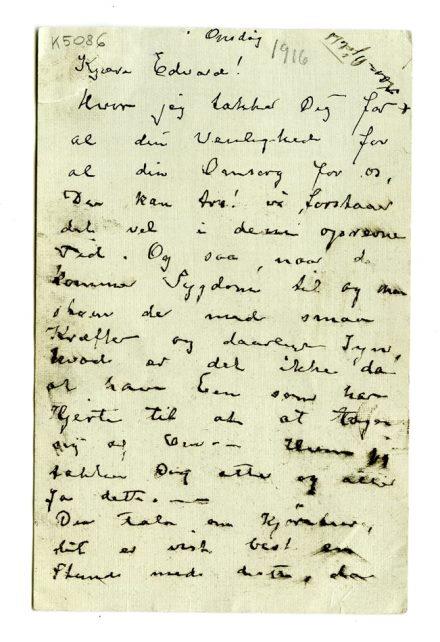 K5086
Onsdag
1916
Kjære Edvard!
Hvor jeg takker Dig for
al din Venlighed for
al din Omsorg for os,
Du kan tro! vi forstaar
det vel i denne oprevne
Tid. Og saa, naar da
kommer Sygdom til og man
der med smaa
Kræfter og daarlige Syn,
hvad er det ikke da
at have Een som har
Hjerte til at
sig af Hvor jeg
takker Dig atter og atter
for dette. —
Du taler om
det er vist best en
Stund med dette, da